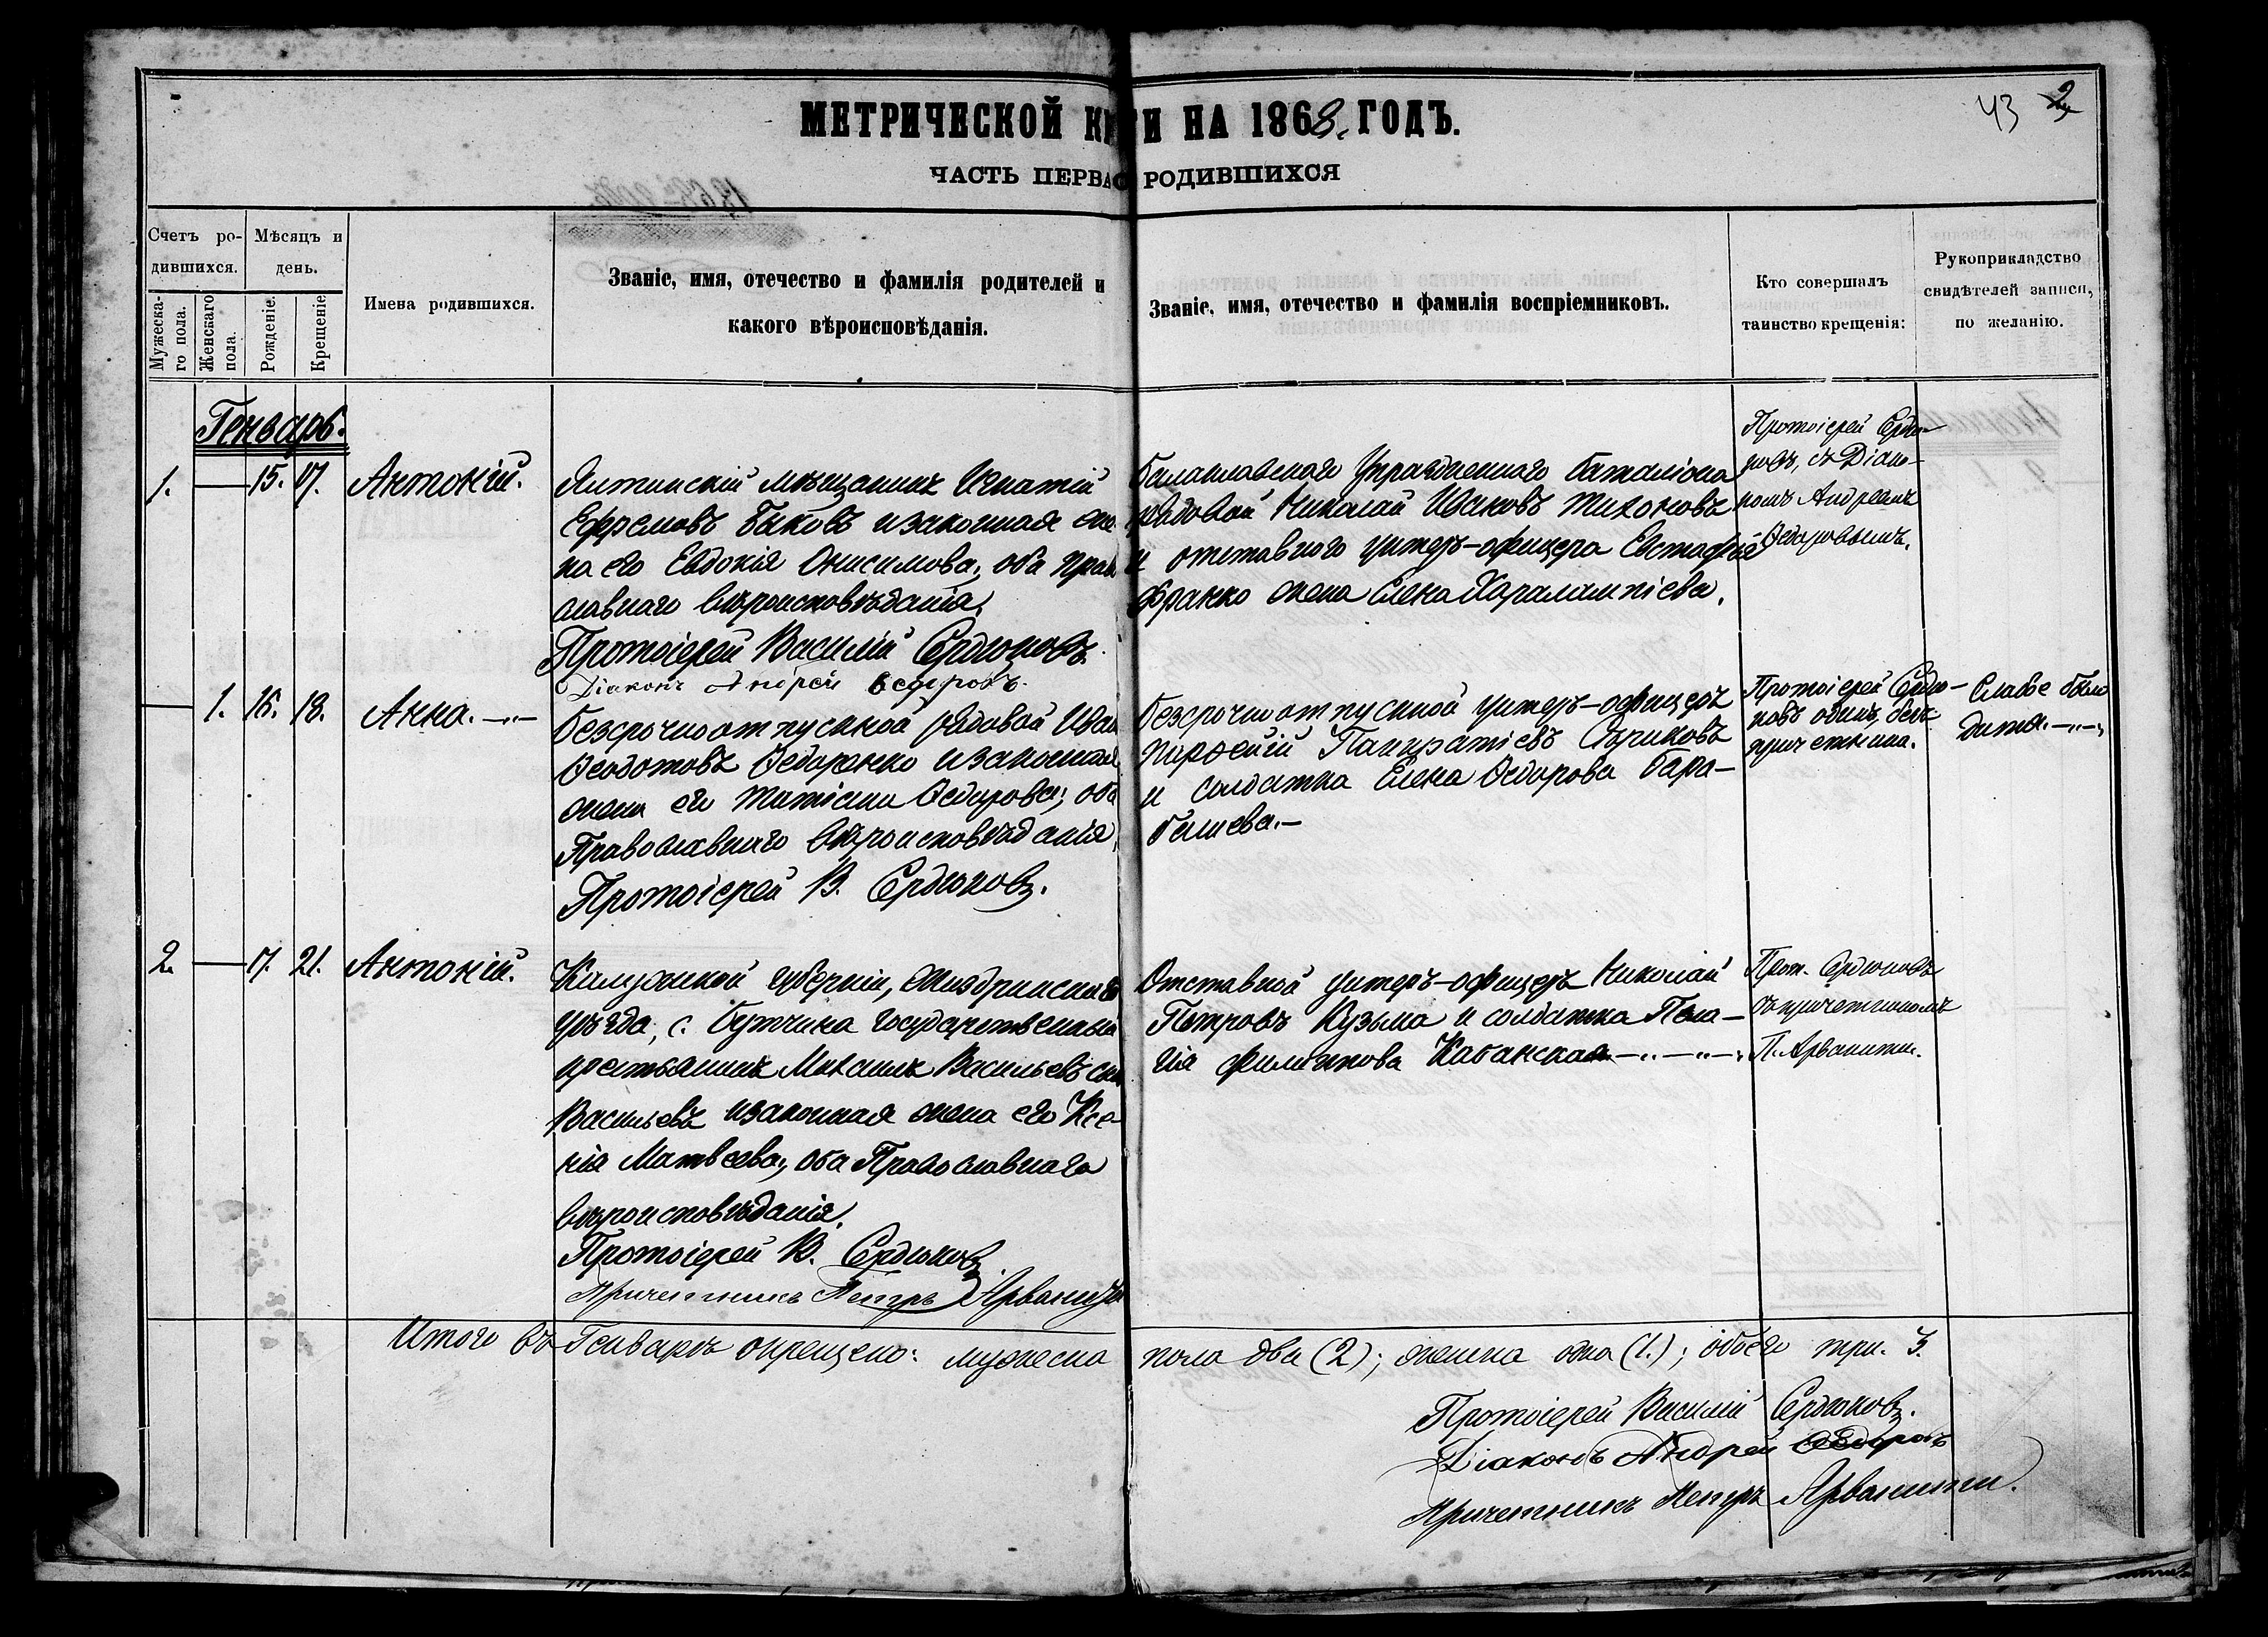 43 2
МЕТРИЧЕСКОЙ К ГИ НА 1868 ГОДЪ.
ЧАСТЬ ПЕРВАЯ О РОДИВШИХСЯ
Счетъ ро-
дившихся.
Мужеска-
го пола.
Женскаго
пола.
Мѣсяцъ и
день.
Рожденіе.
Крещеніе
Имена родившихся.
Званіе, имя, отечество и фамилія родителей и
какого вѣроисповѣданія.
Званіе, имя, отечество и фамилія воспріемниковъ.
Кто совершалъ
таинство крещенія:
Рукоприкладство
свидѣтелей записи,
по желанію.
Генварь.
1. — 15. 17. Антоній.
Ялтинскій мѣщанинъ Игнатій
Ефремовъ Быковъ и законная же-
на его Евдокія Онисимова, оба прав
славнаго вѣроисповѣданія.
Протоіерей Василій Сердюковъ.
Діаконъ Андрей Ѳедоровъ.
Балаклавскаго Упраздненнаго баталіона
рядовой Николай Ивановъ Тихоновъ
и отставнаго унтеръ-офицера Евстафія
Франко жена Елена Харалампіева.
Протоіерей Сердю-
ковъ, съ Діако-
номъ Андреемъ
Ѳедоровымъ.
— 1. 16. 18. Анна.
Безсрочноотпускной рядовой Иван
Ѳеодотовъ Ѳедоренко и законная
жена его Татіана Ѳедорова; оба
Православнаго вѣроисповѣданія,
Протоіерей В. Сердюковъ.
Безсрочноотпускной унтеръ-офицеръ
Парѳеній Панкратіевъ Стриковъ
и солдатка Елена Ѳедорова Бара-
башева.—
Протоіерей Сердю-
ковъ одинъ, безъ
причетника.
Слабое было
дитя.
2. — 17. 21. Антоній.
Калужской губерніи, Жиздринскаго
уѣзда, с. Бутчина государственный
крестьянинъ Максимъ Васильевъ сынъ
Васильевъ и законная жена его Ксе-
нія Матвеева, оба Православнаго
вѣроисповѣданія.
Протоіерей В. Сердюковъ
Причетникъ Петръ Арванити
Отставной унтеръ-офицеръ Николай
Петровъ Кузьма и солдатка Пела-
гія Филипова Кабанская
Прот. Сердюковъ
съ причетникомъ
П. Арванити.
Итого въ Генварѣ окрещено: мужеска пола два (2); женска одна (1.); обоего три. 3.
Протоіерей Василій Сердюковъ.
Діаконъ Андрей Ѳедоровъ
Причетникъ Петръ Арванити.